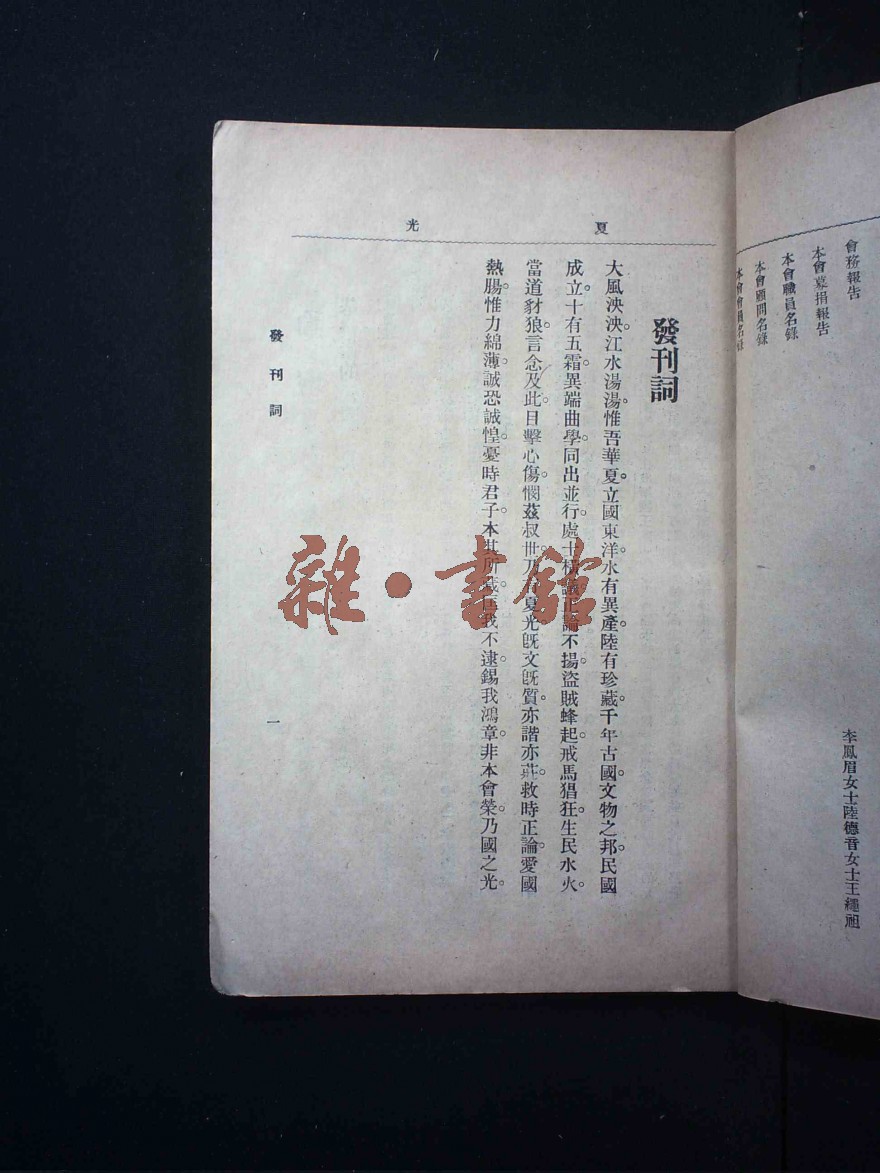 會務報告
本會募捐報告
本會職員名錄
本會顧問名錄
本會會員名錄
李鳳眉女士陸德音女士王繩祖
夏光
發刊詞
大風泱泱。江水湯湯。惟吾華夏。立國東洋。水有異產。陸有珍藏。千年古國。文物之邦。民國
成立。十有五霜。異端曲學。同出並行。處士橫議。正論不揚。盜賊蜂起。戎馬猖狂。生民水火。
當道豺狼。言念及此。目擊心傷。憫茲叔世。乃有夏光。既文既質。亦諧亦莊。救時正論。愛國
熱腸。惟力綿薄。誠恐誠惶。憂時君子。本其所藏。匡我不逮。錫我鴻章。非本會榮。乃國之光。
發刊詞
一
雜·書館